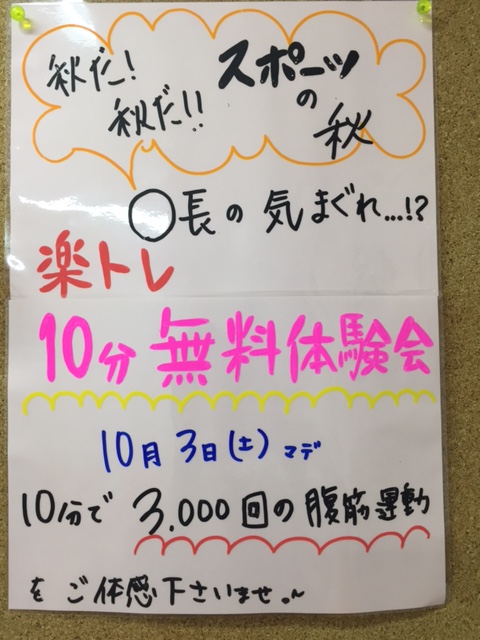 秋だ!
秋だ!!
スポーツ
の
秋
〇長の気まぐれ...!?
楽トレ
10分無料体験会
10月3日(土)マデ
10分で3.000回の腹筋運動
をご体感下さいませ。〜